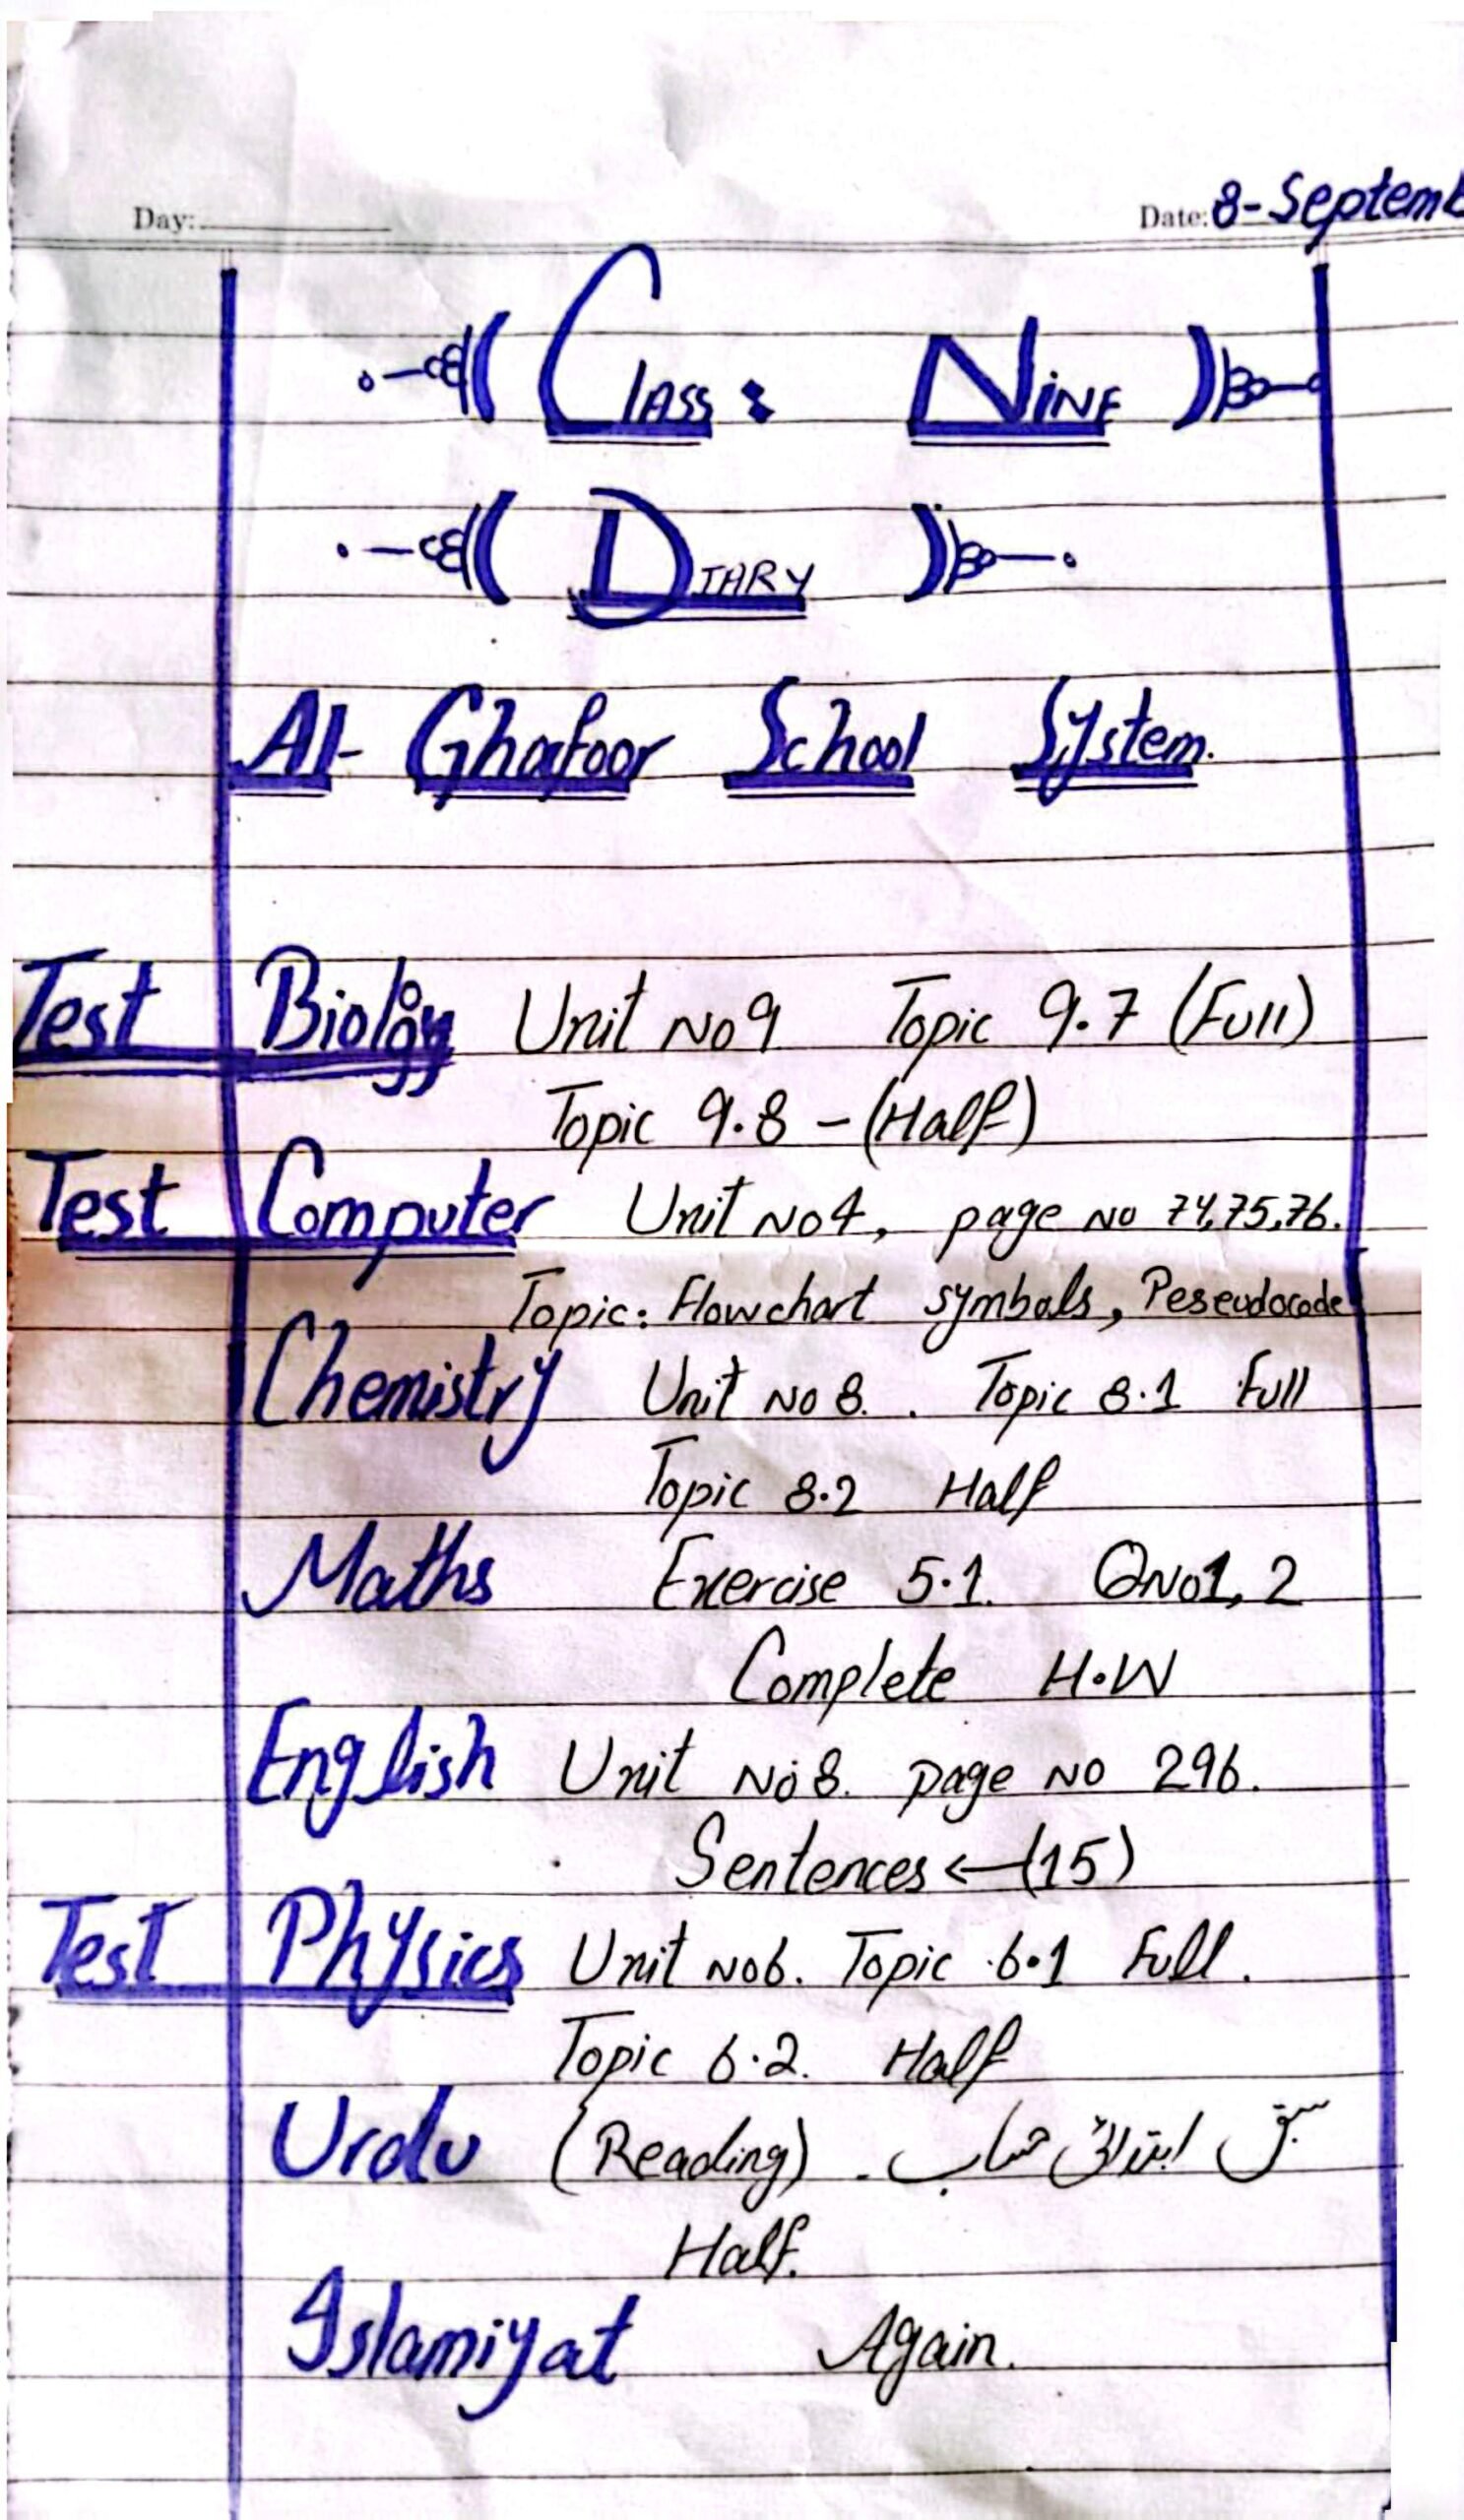 Day:
Date: 8-Septemb
Class: Nine
Diary
Al- Ghafoor School System.
Test Biology Unit No 9 Topic 9.7 (Full)
Topic 9.8 - (Half)
Test Computer Unit No 4, page no 74,75,76.
Topic: Flowchart symbols, Peseudocode
Chemistry Unit No 8. . Topic 8.1 Full
Topic 8.2 Half
Maths Exercise 5.1. QNo1, 2
Complete H.W
English Unit No 8. page no 296.
Sentences ← (15)
Test Physics Unit No 6. Topic 6.1 Full.
Topic 6.2. Half
Urdu (Reading) سبق
Half.
Islamiyat Again.